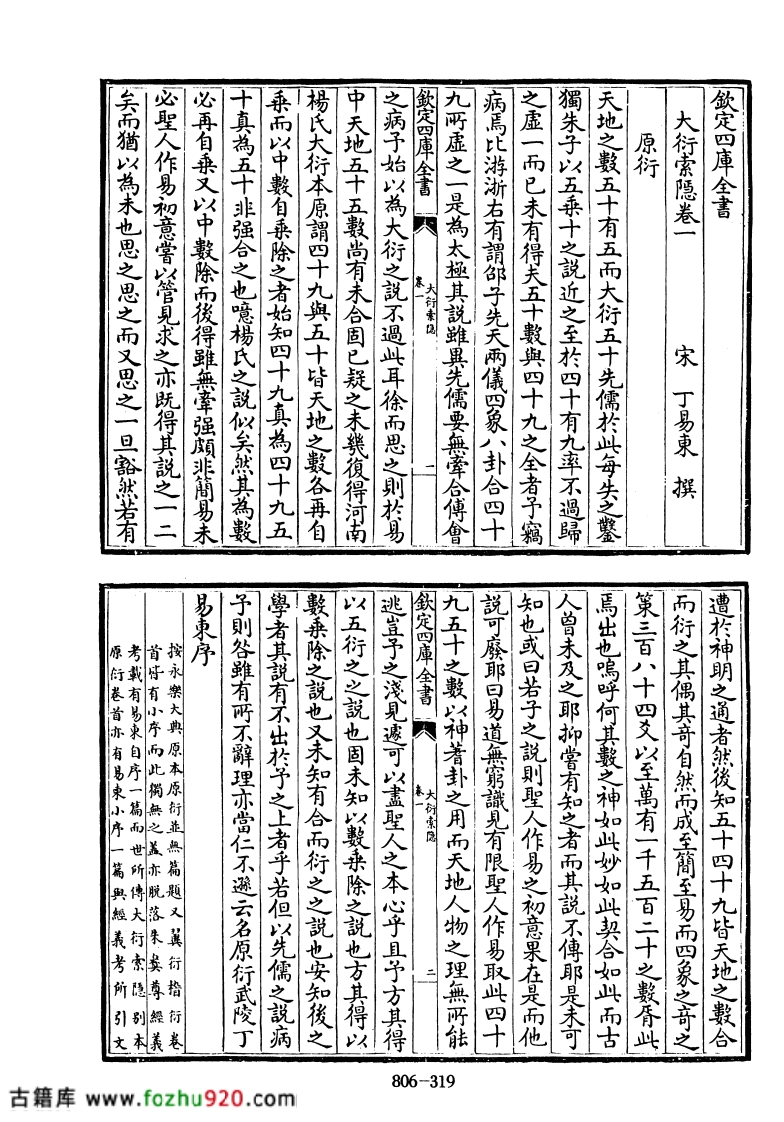 欽定四庫全書
大衍索隱卷一
宋　丁易東　撰
原衍
天地之數五十有五而大衍五十先儒於此每失之鑿
獨朱子以五乘十之說近之至於四十有九率不過歸
之虛一而已未有得夫五十數與四十九之全者予竊
病焉比游浙右有謂邵子先天兩儀四象八卦合四十
九所虛之一是為太極其說雖異先儒要無牽合傅會
欽定四庫全書
大衍索隱
卷一
一
之病予始以為大衍之說不過此耳徐而思之則於易
中天地五十五數尚有未合固已疑之未幾復得河南
楊氏大衍本原謂四十九與五十皆天地之數各再自
乘而以中數自乘除之者始知四十九真為四十九五
十真為五十非强合之也噫楊氏之說似矣然其為數
必再自乘又以中數除而後得雖無牽强頗非簡易未
必聖人作易初意嘗以管見求之亦既得其說之一二
矣而猶以為未也思之思之而又思之一旦豁然若有
遭於神明之通者然後知五十四十九皆天地之數合
而衍之其偶其竒自然而成至簡至易而四象之竒之
策三百八十四爻以至萬有一千五百二十之數胥此
焉出也嗚呼何其數之神如此妙如此契合如此而古
人曾未及之耶抑嘗有知之者而其說不傳耶是未可
知也或曰若子之說則聖人作易之初意果在是而他
說可廢耶曰易道無窮識見有限聖人作易取此四十
九五十之數以神蓍卦之用而天地人物之理無所能
欽定四庫全書
大衍索隱
卷一
二
逃豈予之淺見遽可以盡聖人之本心乎且予方其得
以五衍之之說也固未知以數乘除之說也方其得以
數乘除之說也又未知有合而衍之之說也安知後之
學者其說有不出於予之上者乎若但以先儒之說病
予則咎雖有所不辭理亦當仁不遜云名原衍武陵丁
易東序
按永樂大典原本原衍並無篇題又翼衍稽衍卷
首皆有小序而此獨無之蓋亦脱落朱彛尊經義
考載有易東自序一篇而世所傳大衍索隱別本
原衍卷首亦有易東小序一篇與經義考所引文
806-319
古籍库 www.fozhu920.com